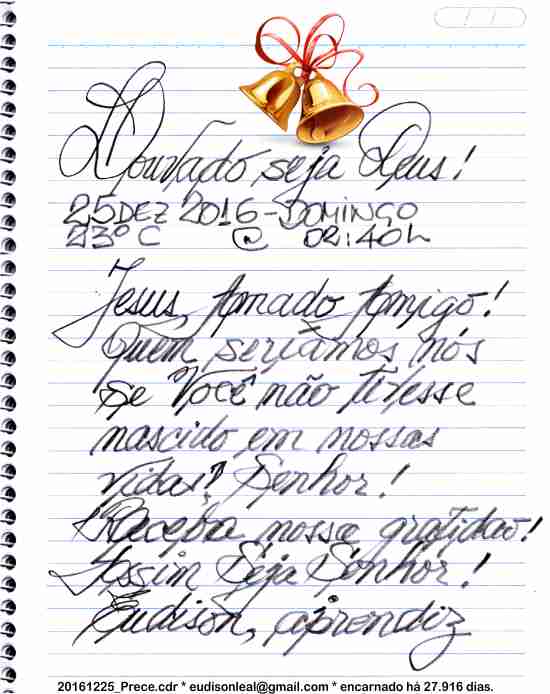 Louvado seja Deus!
25 DEZ 2016 - DOMINGO
23º C @ 02:40h
Jesus, Amado Amigo!
Quem seríamos nós
se Você não tivesse
nascido em nossas
vidas? Senhor!
Receba nossa gratidão!
Assim Seja Senhor!
Eudison, aprendiz
20161225_Prece.cdr * eudisonleal@gmail.com * encarnado há 27.916 dias.